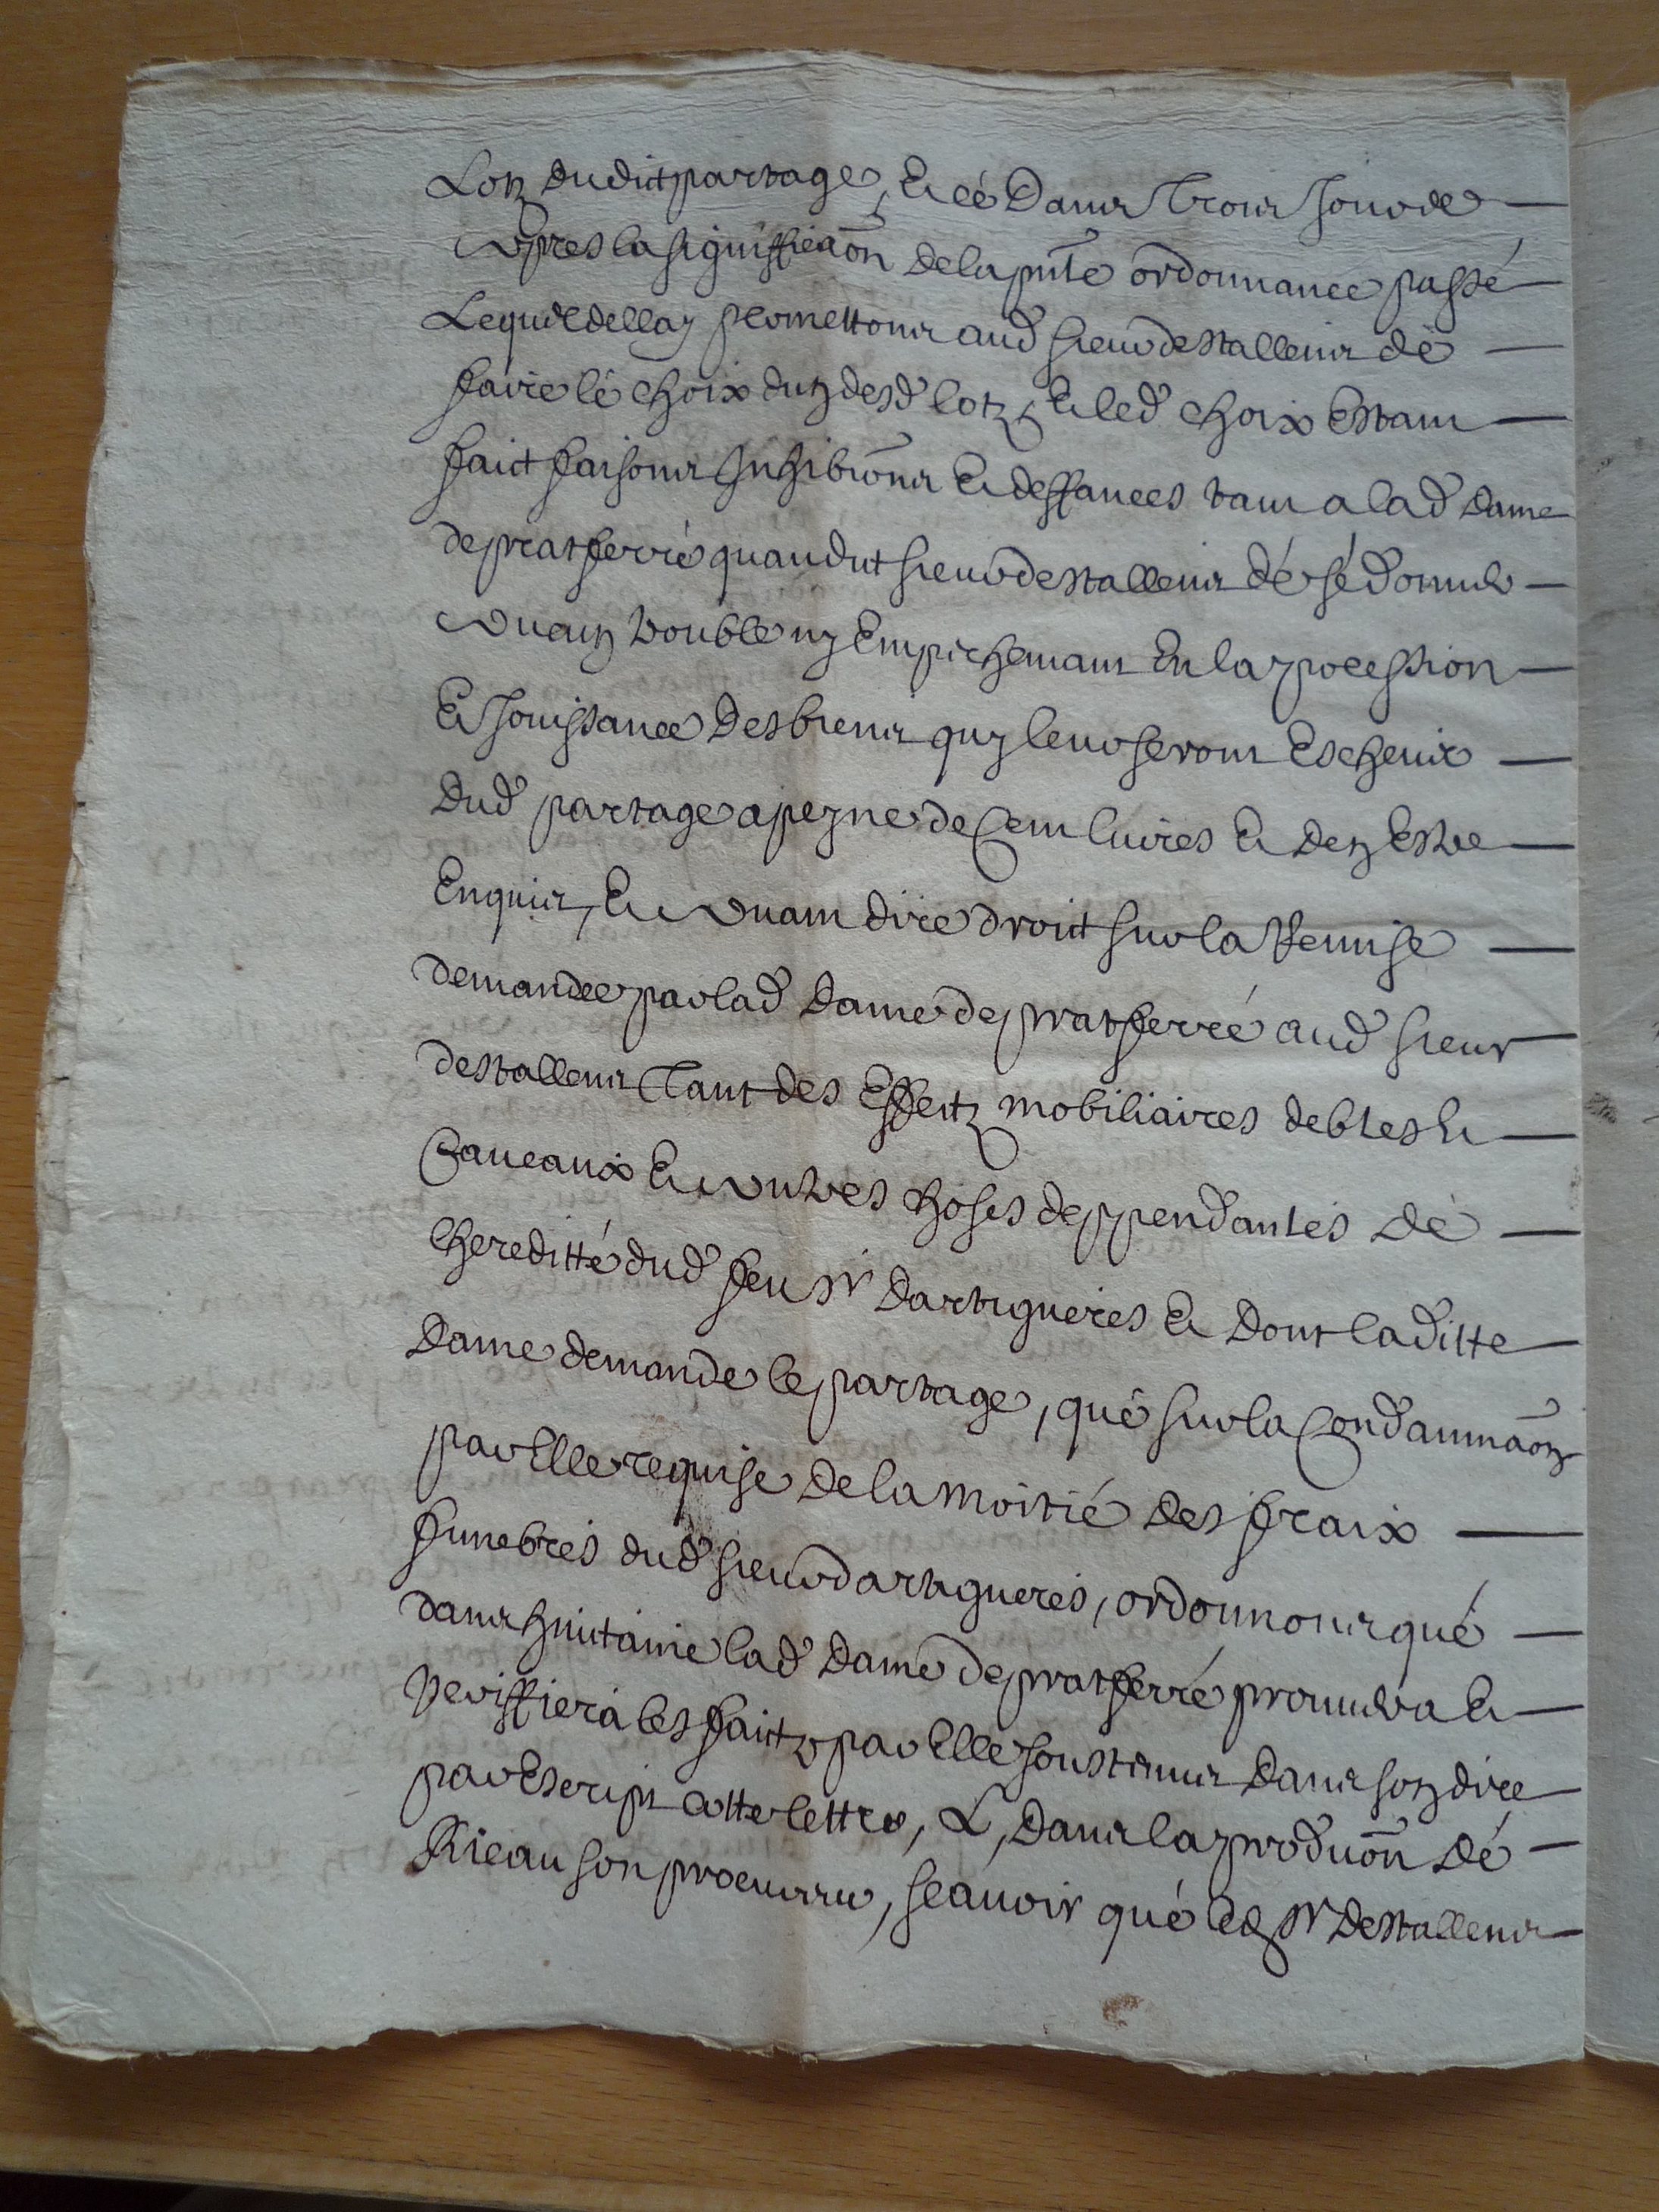 Lotz dudict partage, Et cé Dans Trois Jours de
apres la signiffica͠on dela pnte ordonnance passé
Lequel dellay permettons aud sieur destallens de
faire lé choix dun desd lotz, Et led choix Estant
faict faisons Inhibi͠ons Et deffances tant a lad Dame
de pratferré quaudit sieur destallens dé sé donner
aucun trouble ny Empechemant En lapocession
Et Jouissance Des biens quy leur seront Escheuix
Dud partage apeyne de Cent livres Et den Estre
Enquis, Et avant dire droict sur la Remise
demandee par lad Dame de pratferré aud sieur
destallens Tant des Effectz mobiliaires debtes Et
Caneaux Et autres choses deppendantes dé
lhereditté dud feu Sr Dartigueres Et Dont laditte
Dame demande le partage, qué sur la Condamna͠on
par Elle requise De la moitié Des fraix
funebres dud sieur dartigueres, ordonnons qué
dans huitaine lad Dame de pratferré prouvera Et
veriffiera les faictz par Elle soustenus Dans son dire
par Escript cotte lettre, L, Dans la produ͠on dé
Rieau son procureur, scavoir qué led Sr Destallens